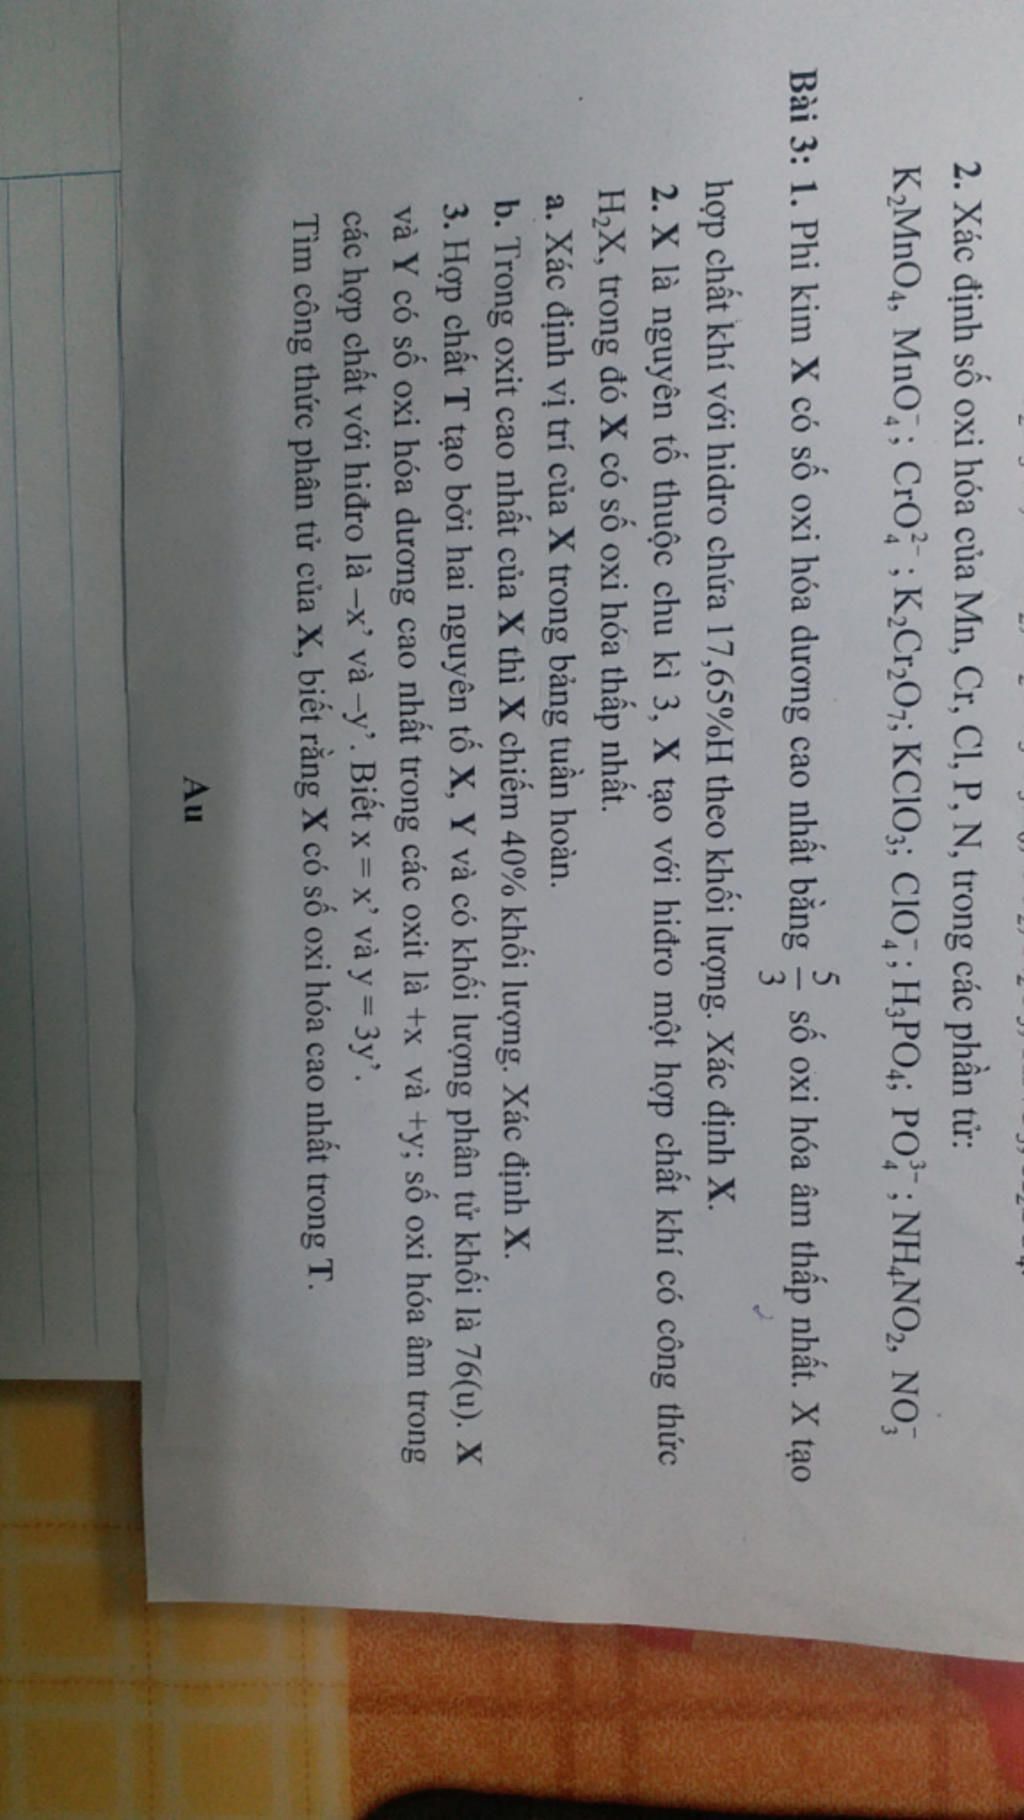 2. Xác định số oxi hóa của Mn, Cr, Cl, P, N, trong các phần tử:
K₂MnO₄, MnO₄⁻; CrO₄²⁻; K₂Cr₂O₇; KClO₃; ClO₄⁻; H₃PO₄; PO₄³⁻; NH₄NO₂, NO₃⁻
Bài 3: 1. Phi kim X có số oxi hóa dương cao nhất bằng 5/3 số oxi hóa âm thấp nhất. X tạo
hợp chất khí với hidro chứa 17,65%H theo khối lượng. Xác định X.
2. X là nguyên tố thuộc chu kì 3, X tạo với hiđro một hợp chất khí có công thức
H₂X, trong đó X có số oxi hóa thấp nhất.
a. Xác định vị trí của X trong bảng tuần hoàn.
b. Trong oxit cao nhất của X thì X chiếm 40% khối lượng. Xác định X.
3. Hợp chất T tạo bởi hai nguyên tố X, Y và có khối lượng phân tử khối là 76(u). X
và Y có số oxi hóa dương cao nhất trong các oxit là +x và +y; số oxi hóa âm trong
các hợp chất với hiđro là –x’ và –y’. Biết x = x’ và y = 3y’.
Tìm công thức phân tử của X, biết rằng X có số oxi hóa cao nhất trong T.
Au